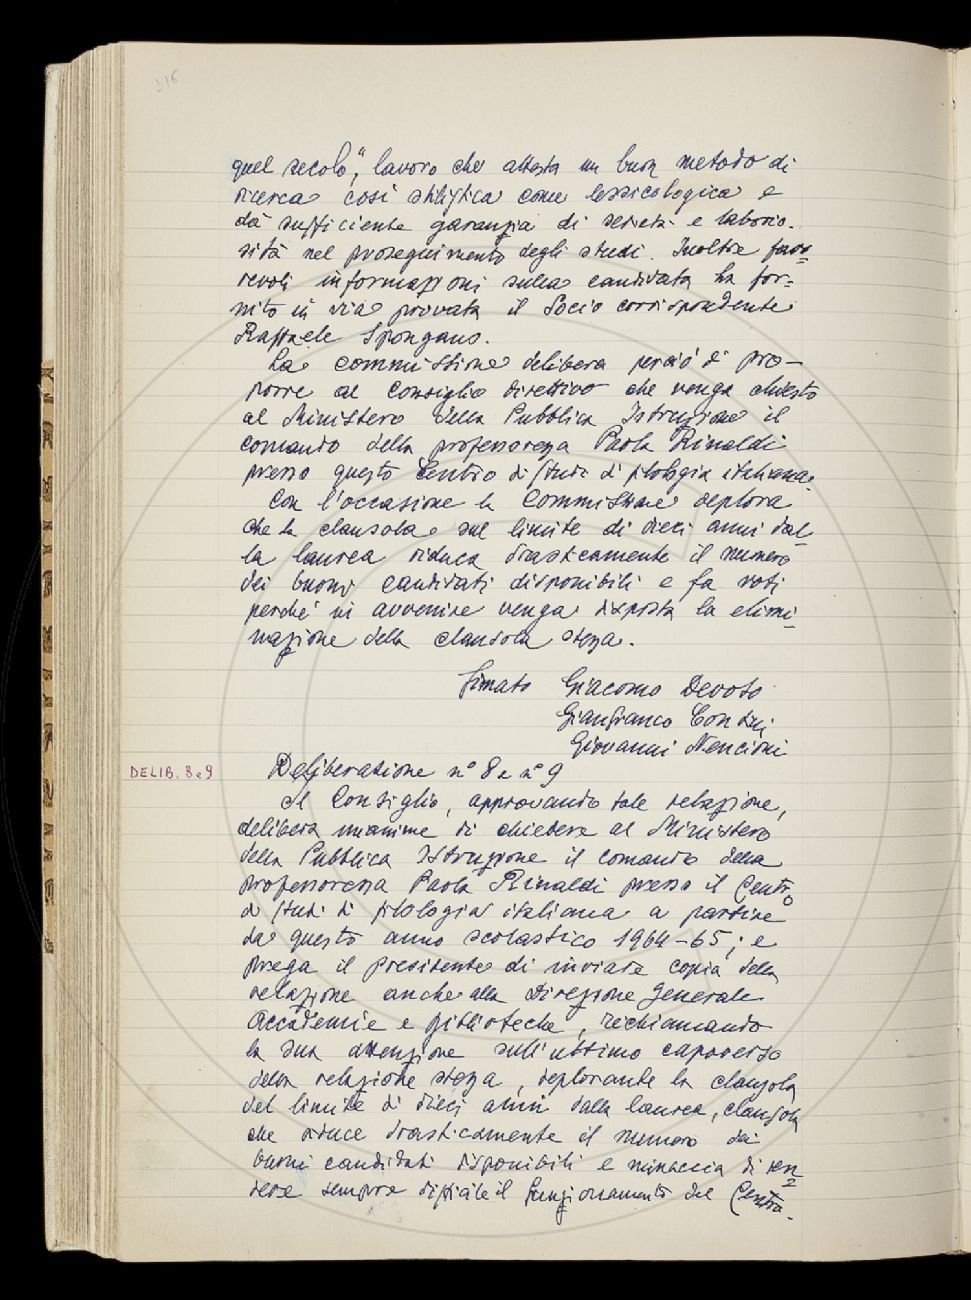 316
quel secolo", lavoro che attesta un buon metodo di
ricerca così stilistica come lessicologica e
dà sufficiente garanzia di serietà e laborio-
sità nel proseguimento degli studi. Inoltre favo-
revoli informazioni sulla candidata ha for-
nito in via privata il Socio corrispondente
Raffaele Spongano.
La commissione delibera perciò di pro-
porre al Consiglio direttivo che venga chiesto
al Ministero della Pubblica Istruzione il
comando della professoressa Paola Rinaldi
presso questo Centro di Studi di filologia italiana.
Con l'occasione la Commissione deplora
che la clausola sul limite di dieci anni dal-
la laurea riduca drasticamente il numero
dei buoni candidati disponibili e fa voti
perché in avvenire venga disposta la elimi-
nazione della clausola stessa.
firmato Giacomo Devoto
Gianfranco Contini
Giovanni Nencioni
DELIB. 8 e 9
Deliberazione n° 8 e n° 9
Il Consiglio, approvando tale relazione,
delibera unanime di chiedere al Ministero
della Pubblica Istruzione il comando della
professoressa Paola Rinaldi presso il Centro
di Studi di filologia italiana a partire
da questo anno scolastico 1964-65; e
prega il presidente di inviare copia della
relazione anche alla Direzione generale
Accademie e Biblioteche, richiamando
la sua attenzione sull'ultimo capoverso
della relazione stessa, deplorante la clausola
del limite di dieci anni dalla laurea, clausola
che riduce drasticamente il numero dei
buoni candidati disponibili e minaccia di ren-
dere sempre difficile il funzionamento del Centro.